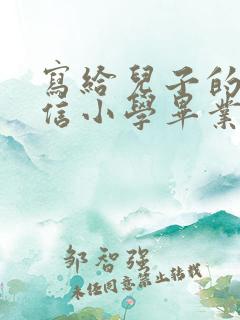 寫給兒子的
信小學畢業
鄒智強
未經同意禁止轉載